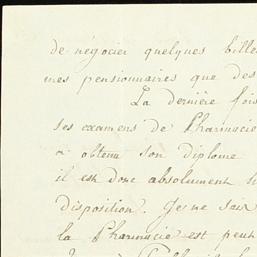 de négocier quelques bille
mes pensionnaires que des
La dernière fois
ses examens de Pharmacie
a obtenu son diplome
il est donc absolument
disposition. Je ne sais
la Pharmacie est peut